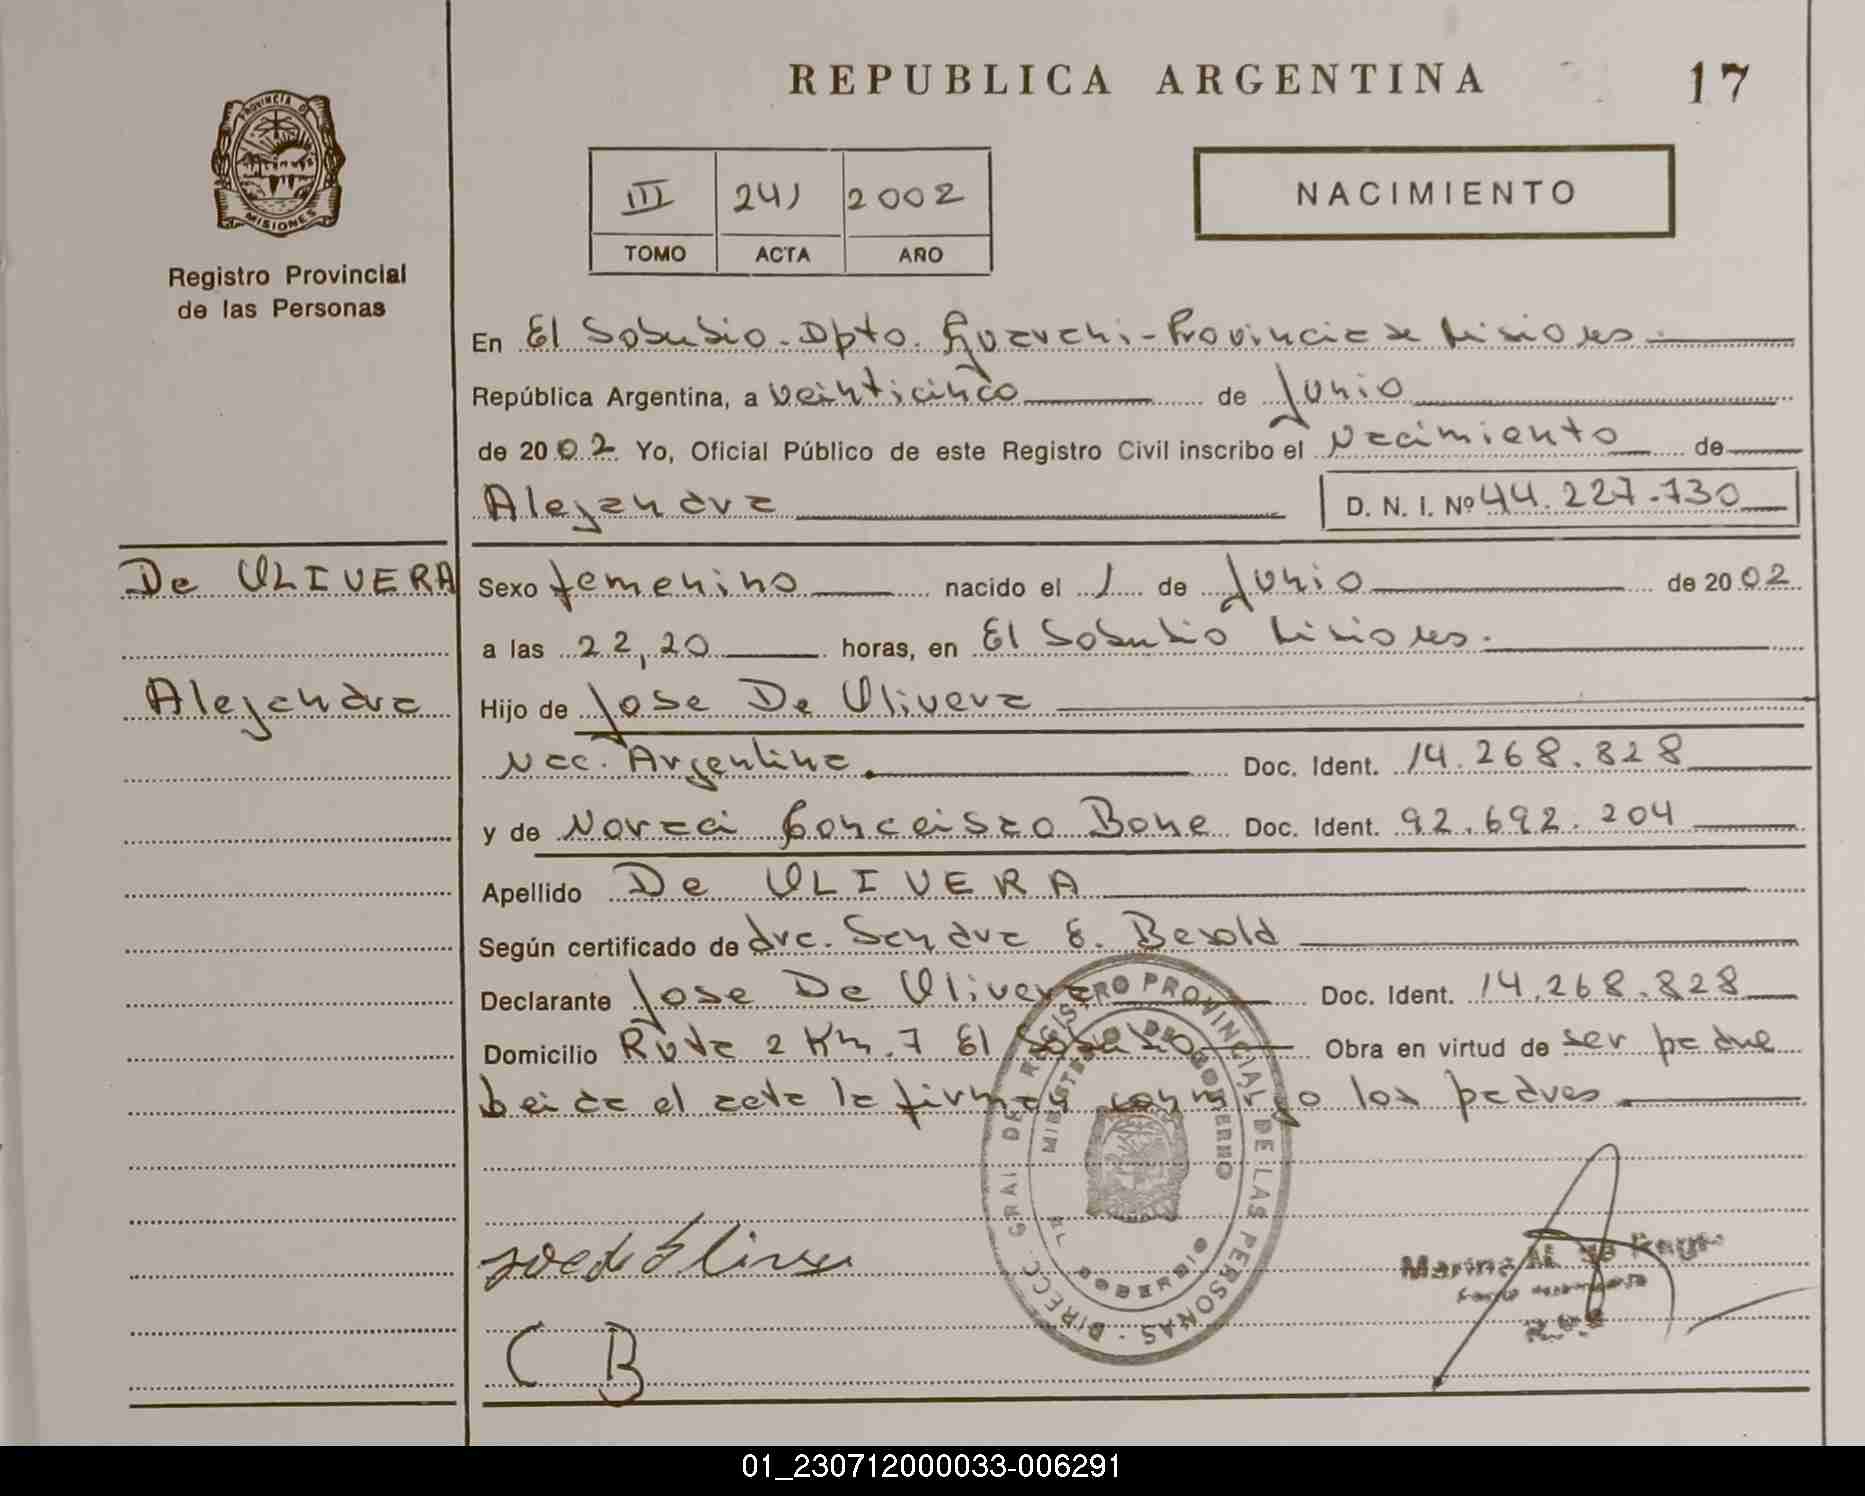 REPUBLICA ARGENTINA 17
PROVINCIA DE MISIONES
Registro Provincial
de las Personas
III 241 2002
TOMO ACTA AÑO
NACIMIENTO
En El Soberbio - Dpto. Guarani - Provincia de Misiones.
República Argentina, a veinticinco de Junio
de 2002 Yo, Oficial Público de este Registro Civil inscribo el Nacimiento de
Alejandra D. N. I. Nº 44.227.730
De OLIVERA
Alejandra
Sexo femenino nacido el 1 de Junio de 2002
a las 22,20 horas, en El Soberbio Misiones.
Hijo de Jose De Olivera
Nac. Argentina. Doc. Ident. 14.268.828
y de Noraci Conceisao Bone Doc. Ident. 92.692.204
Apellido De OLIVERA
Según certificado de dra. Sandra E. Besold
Declarante Jose De Olivera Doc. Ident. 14.268.828
Domicilio Ruta 2 Km. 7 El Soberbio Obra en virtud de ser padre
Leida el acta la firman conmigo los padres
DIRECC. GRAL DE REGISTRO PROVINCIAL DE LAS PERSONAS
MINISTERIO DE GOBIERNO
C B
01_230712000033-006291